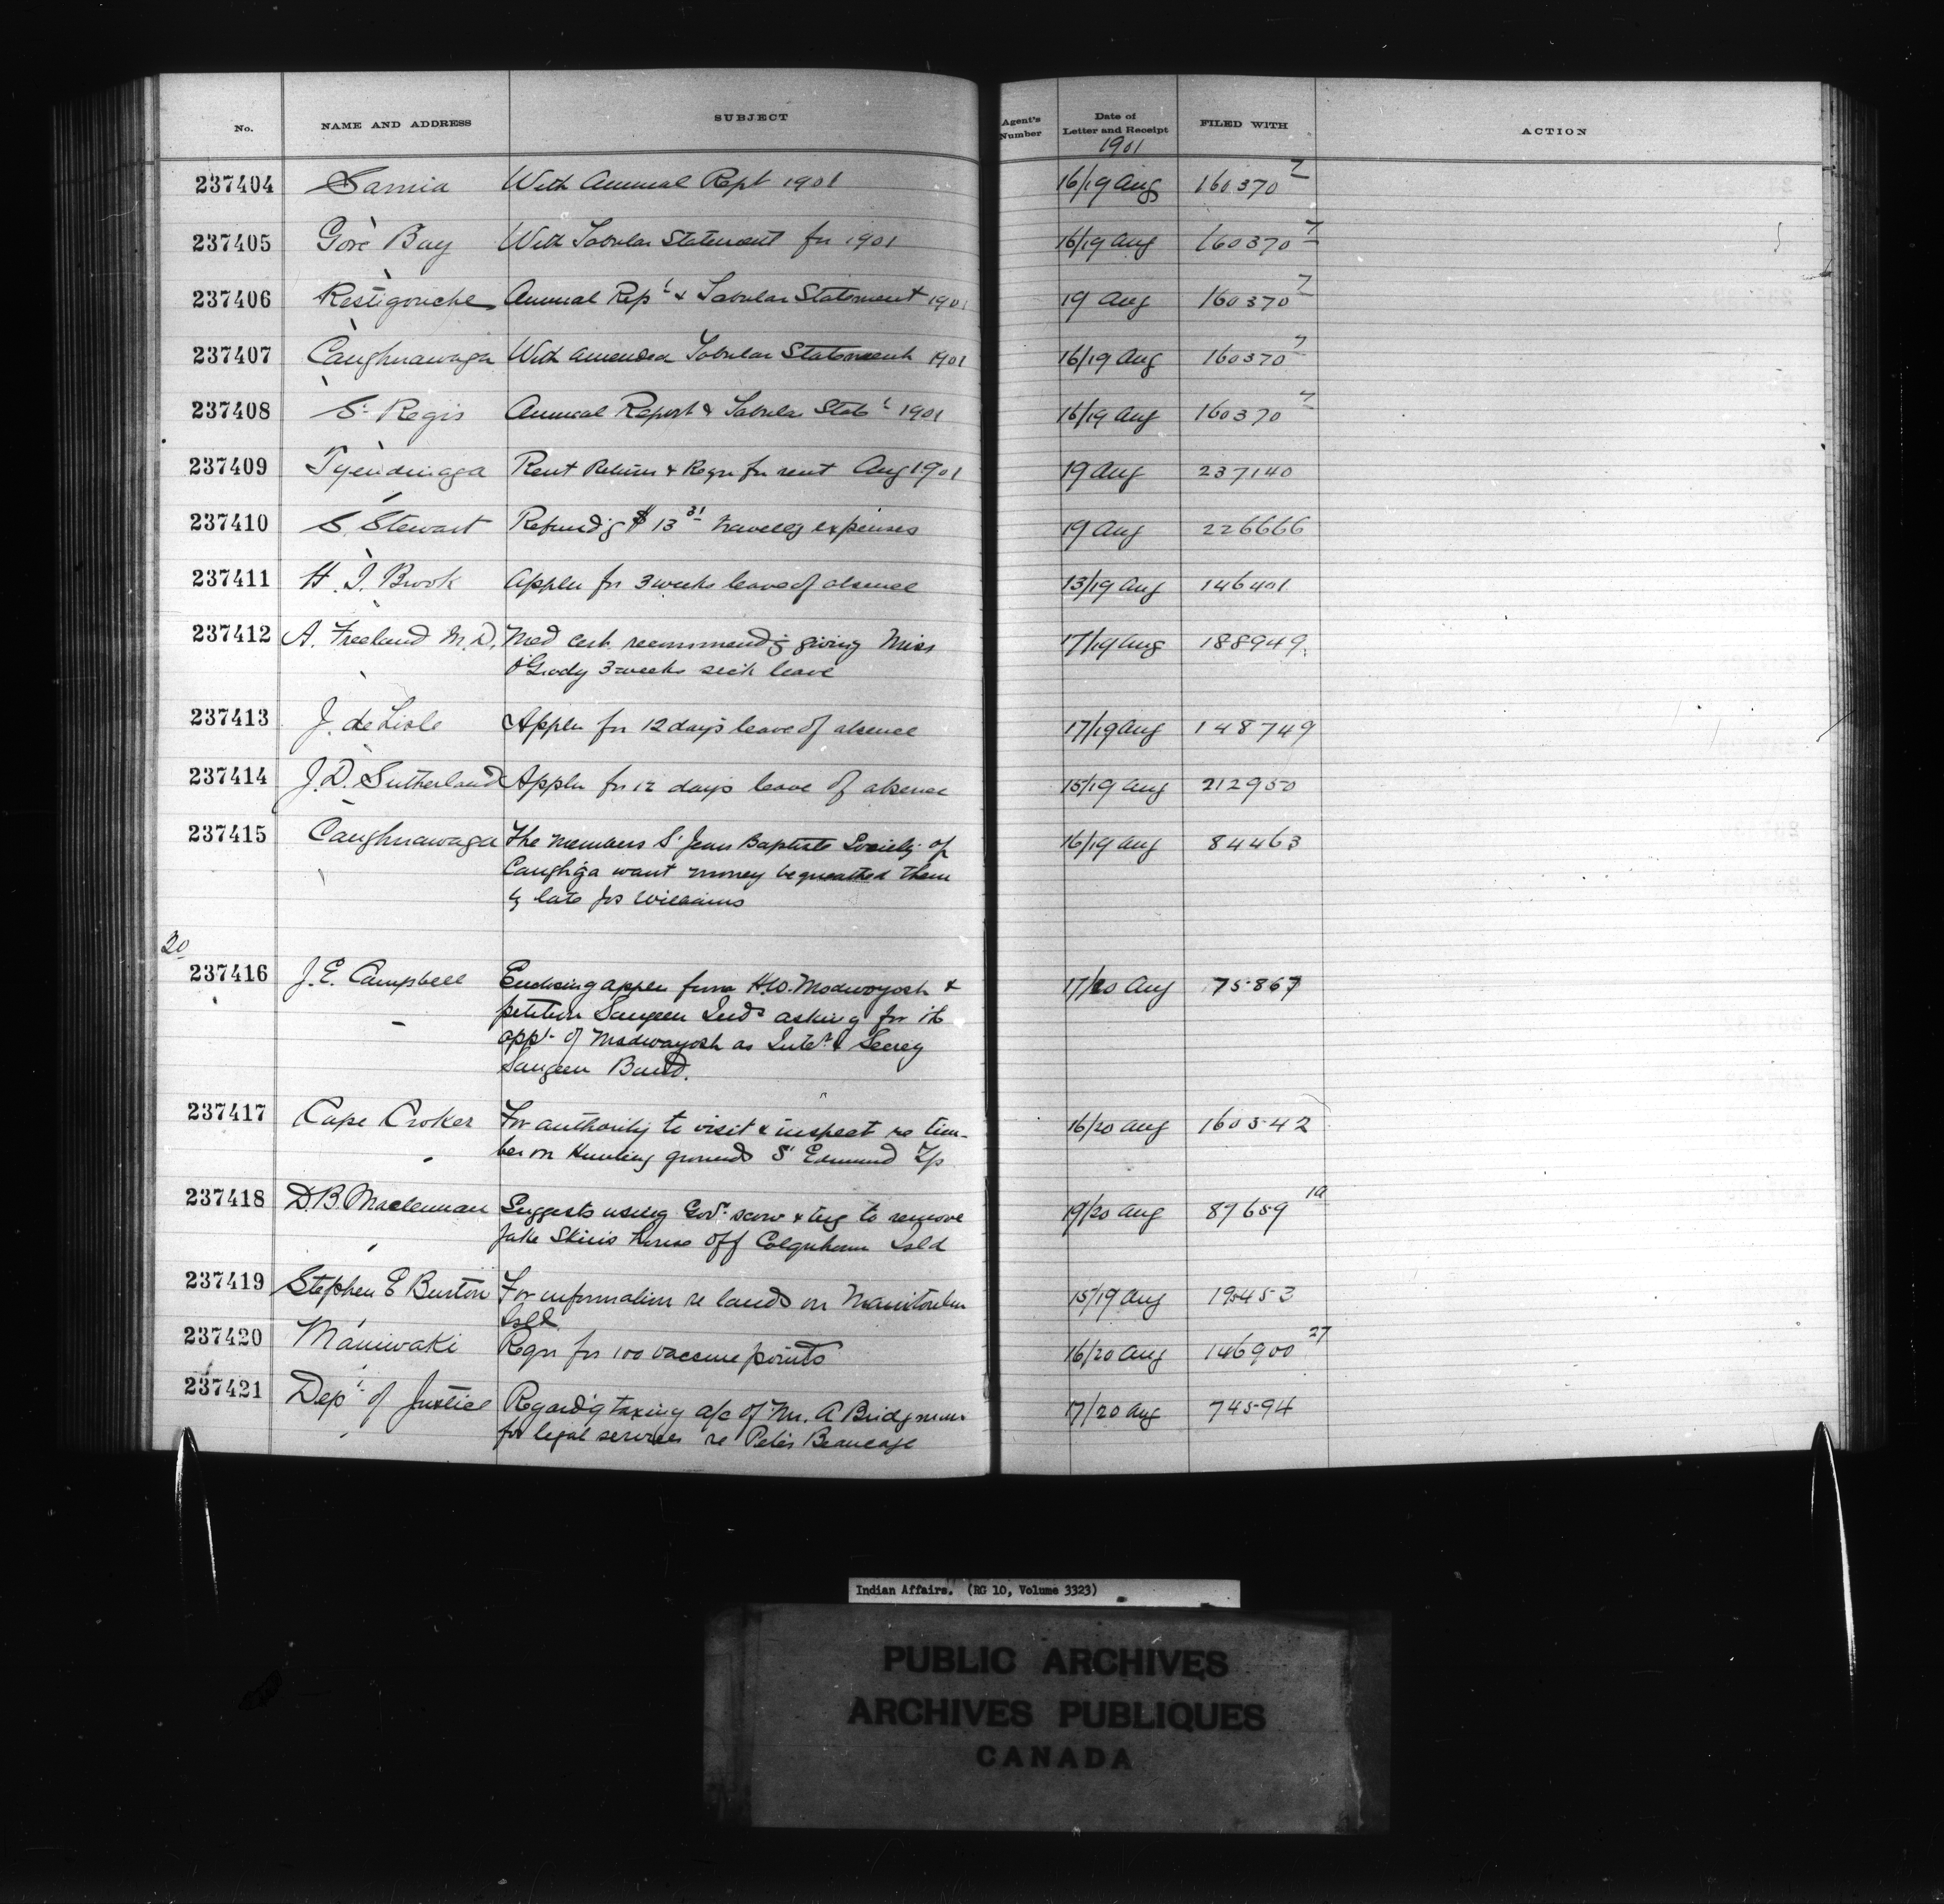 No. NAME AND ADDRESS SUBJECT Agent's Number Date of Letter and Receipt FILED WITH ACTION
1901
237404 Sarnia With Annual Rept 1901 16/19 Aug 160370 7
237405 Gore Bay With Tabular Statement for 1901 16/19 Aug 160370 7
237406 Restigouche Annual Rept & Tabular Statement 1901 19 Aug 160370 7
237407 Caughnawaga With amended Tabular Statement 1901 16/19 Aug 160370 7
237408 St Regis Annual Report & Tabular Statt 1901 16/19 Aug 160370 7
237409 Tyendinaga Rent Return & Reqn for rent Aug 1901 19 Aug 237140
237410 S. Stewart Refundg $13 31 travelg expenses 19 Aug 226666
237411 H. J. Brook Appln for 3 weeks leave of absence 13/19 Aug 146401
237412 A. Freeland M.D. Med cert. recommendg giving Miss 17/19 Aug 188949
O'Grady 3 weeks sick leave
237413 J. de Lisle Appln for 12 days leave of absence 17/19 Aug 148749
237414 J. D. Sutherland Appln for 12 days leave of absence 15/19 Aug 212950
237415 Caughnawaga The members St Jean Baptiste Society of 16/19 Aug 84463
Caugh'ga want money bequeathed them
by late Jos Williams
20
237416 J. E. Campbell Enclosing appln from H.W. Madwayosh & 17/20 Aug 75867
petition Saugeen Inds asking for
appt of Madwayosh as Intr & Secrey
Saugeen Band.
237417 Cape Croker For authority to visit & inspect re tim- 16/20 Aug 160542
ber on Hunting grounds St Edmund Tp
237418 D.B. Maclennan Suggests using Govt scow & tug to remove 19/20 Aug 87659 1a
Jake Skin's house off Colquhoun Isld
237419 Stephen E Burton For information re lands on Manitoulin 15/19 Aug 195453
Isld
237420 Maniwaki Reqn for 100 vaccine points 16/20 Aug 146900 27
237421 Dept of Justice Regardg taxing a/c of Mr. A Bridgman 17/20 Aug 74594
for legal services re Peter Beaucage
Indian Affairs. (RG 10, Volume 3323)
PUBLIC ARCHIVES
ARCHIVES PUBLIQUES
CANADA